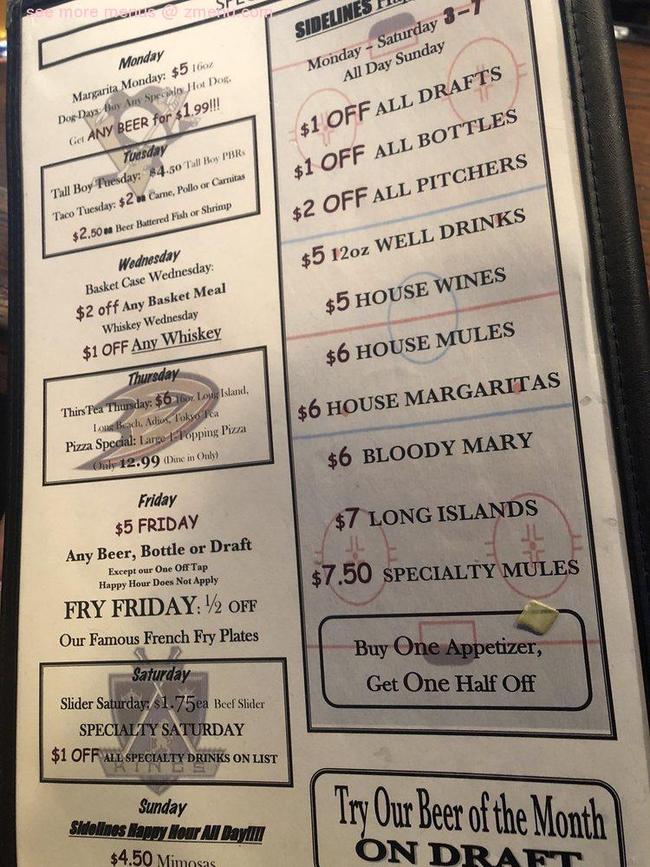 see more menus @ zmenu.com
Monday
Margarita Monday: $5 16oz
Dog Days: Buy Any Specialty Hot Dog,
Get ANY BEER for $1.99!!!
Tuesday
Tall Boy Tuesday: $4.50 Tall Boy PBRs
Taco Tuesday: $2 ea Carne, Pollo or Carnitas
$2.50 ea Beer Battered Fish or Shrimp
Wednesday
Basket Case Wednesday:
$2 off Any Basket Meal
Whiskey Wednesday
$1 OFF Any Whiskey
Thursday
ThirsTea Thursday: $6 16oz Long Island,
Long Beach, Adios, Tokyo Tea
Pizza Special: Large 1-Topping Pizza
Only 12.99 (Dine in Only)
Friday
$5 FRIDAY
Any Beer, Bottle or Draft
Except our One Off Tap
Happy Hour Does Not Apply
FRY FRIDAY: ½ OFF
Our Famous French Fry Plates
Saturday
Slider Saturday: $1.75ea Beef Slider
SPECIALTY SATURDAY
$1 OFF ALL SPECIALTY DRINKS ON LIST
KINGS
Sunday
Sidelines Happy Hour All Day!!!!
$4.50 Mimosas
SIDELINES
Monday – Saturday 3 – 7
All Day Sunday
$1 OFF ALL DRAFTS
$1 OFF ALL BOTTLES
$2 OFF ALL PITCHERS
$5 12oz WELL DRINKS
$5 HOUSE WINES
$6 HOUSE MULES
$6 HOUSE MARGARITAS
$6 BLOODY MARY
$7 LONG ISLANDS
$7.50 SPECIALTY MULES
Buy One Appetizer,
Get One Half Off
Try Our Beer of the Month
ON DRAFT